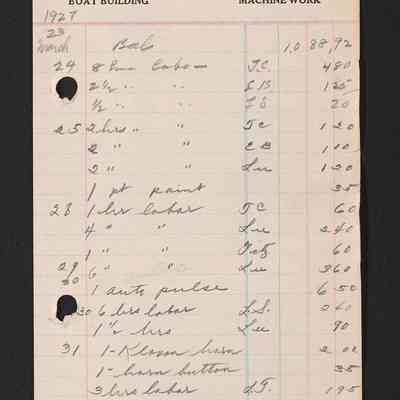 BOAT BUILDING MACHINE WORK
1927
23
March Bal 1,088,92
24 8 hrs labor T.C. 480
2 1/2 " " C B 125
1/2 " " 20
25 2 hrs " " T C 120
2 " " C B 100
2 " " Lee 120
1 pt paint 35
28 1 hr labor T C 60
4 " " Lee 240
1 " " 60
29 6 " " Lee 360
30 1 auto pulse 6 50
30 6 hrs labor L.S. 240
1 1/2 hrs Lee 90
31 1 - Klaxon horn 2 02
1 - horn button 35
3 hrs labor 195